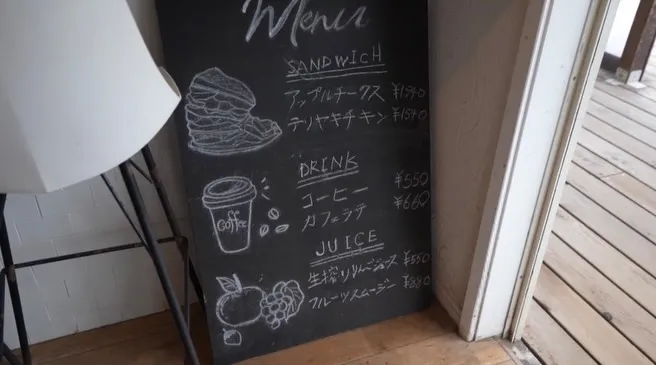 Menu
SANDWICH
アップルチークス ¥1540
テリヤキチキン ¥1540
DRINK
コーヒー ¥550
カフェラテ ¥660
Coffee
JUICE
生搾りりんごジュース ¥550
フルーツスムージー ¥880